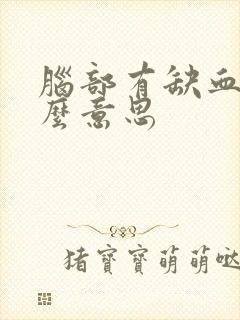 腦部有缺血
麼意思
猪寶寶萌萌哒